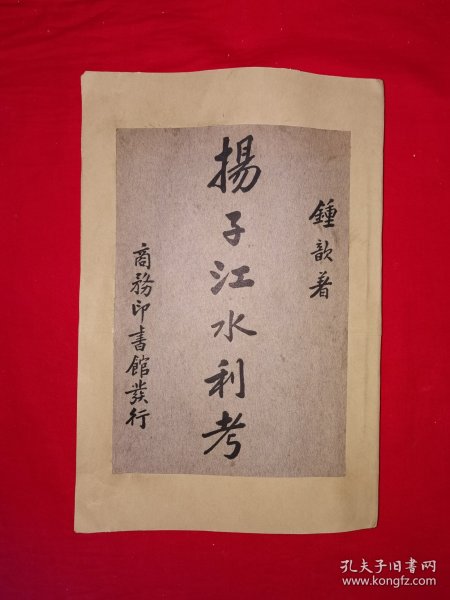 鍾歆著
揚子江水利考
商務印書館發行
孔夫子旧书网
www.kongfz.com